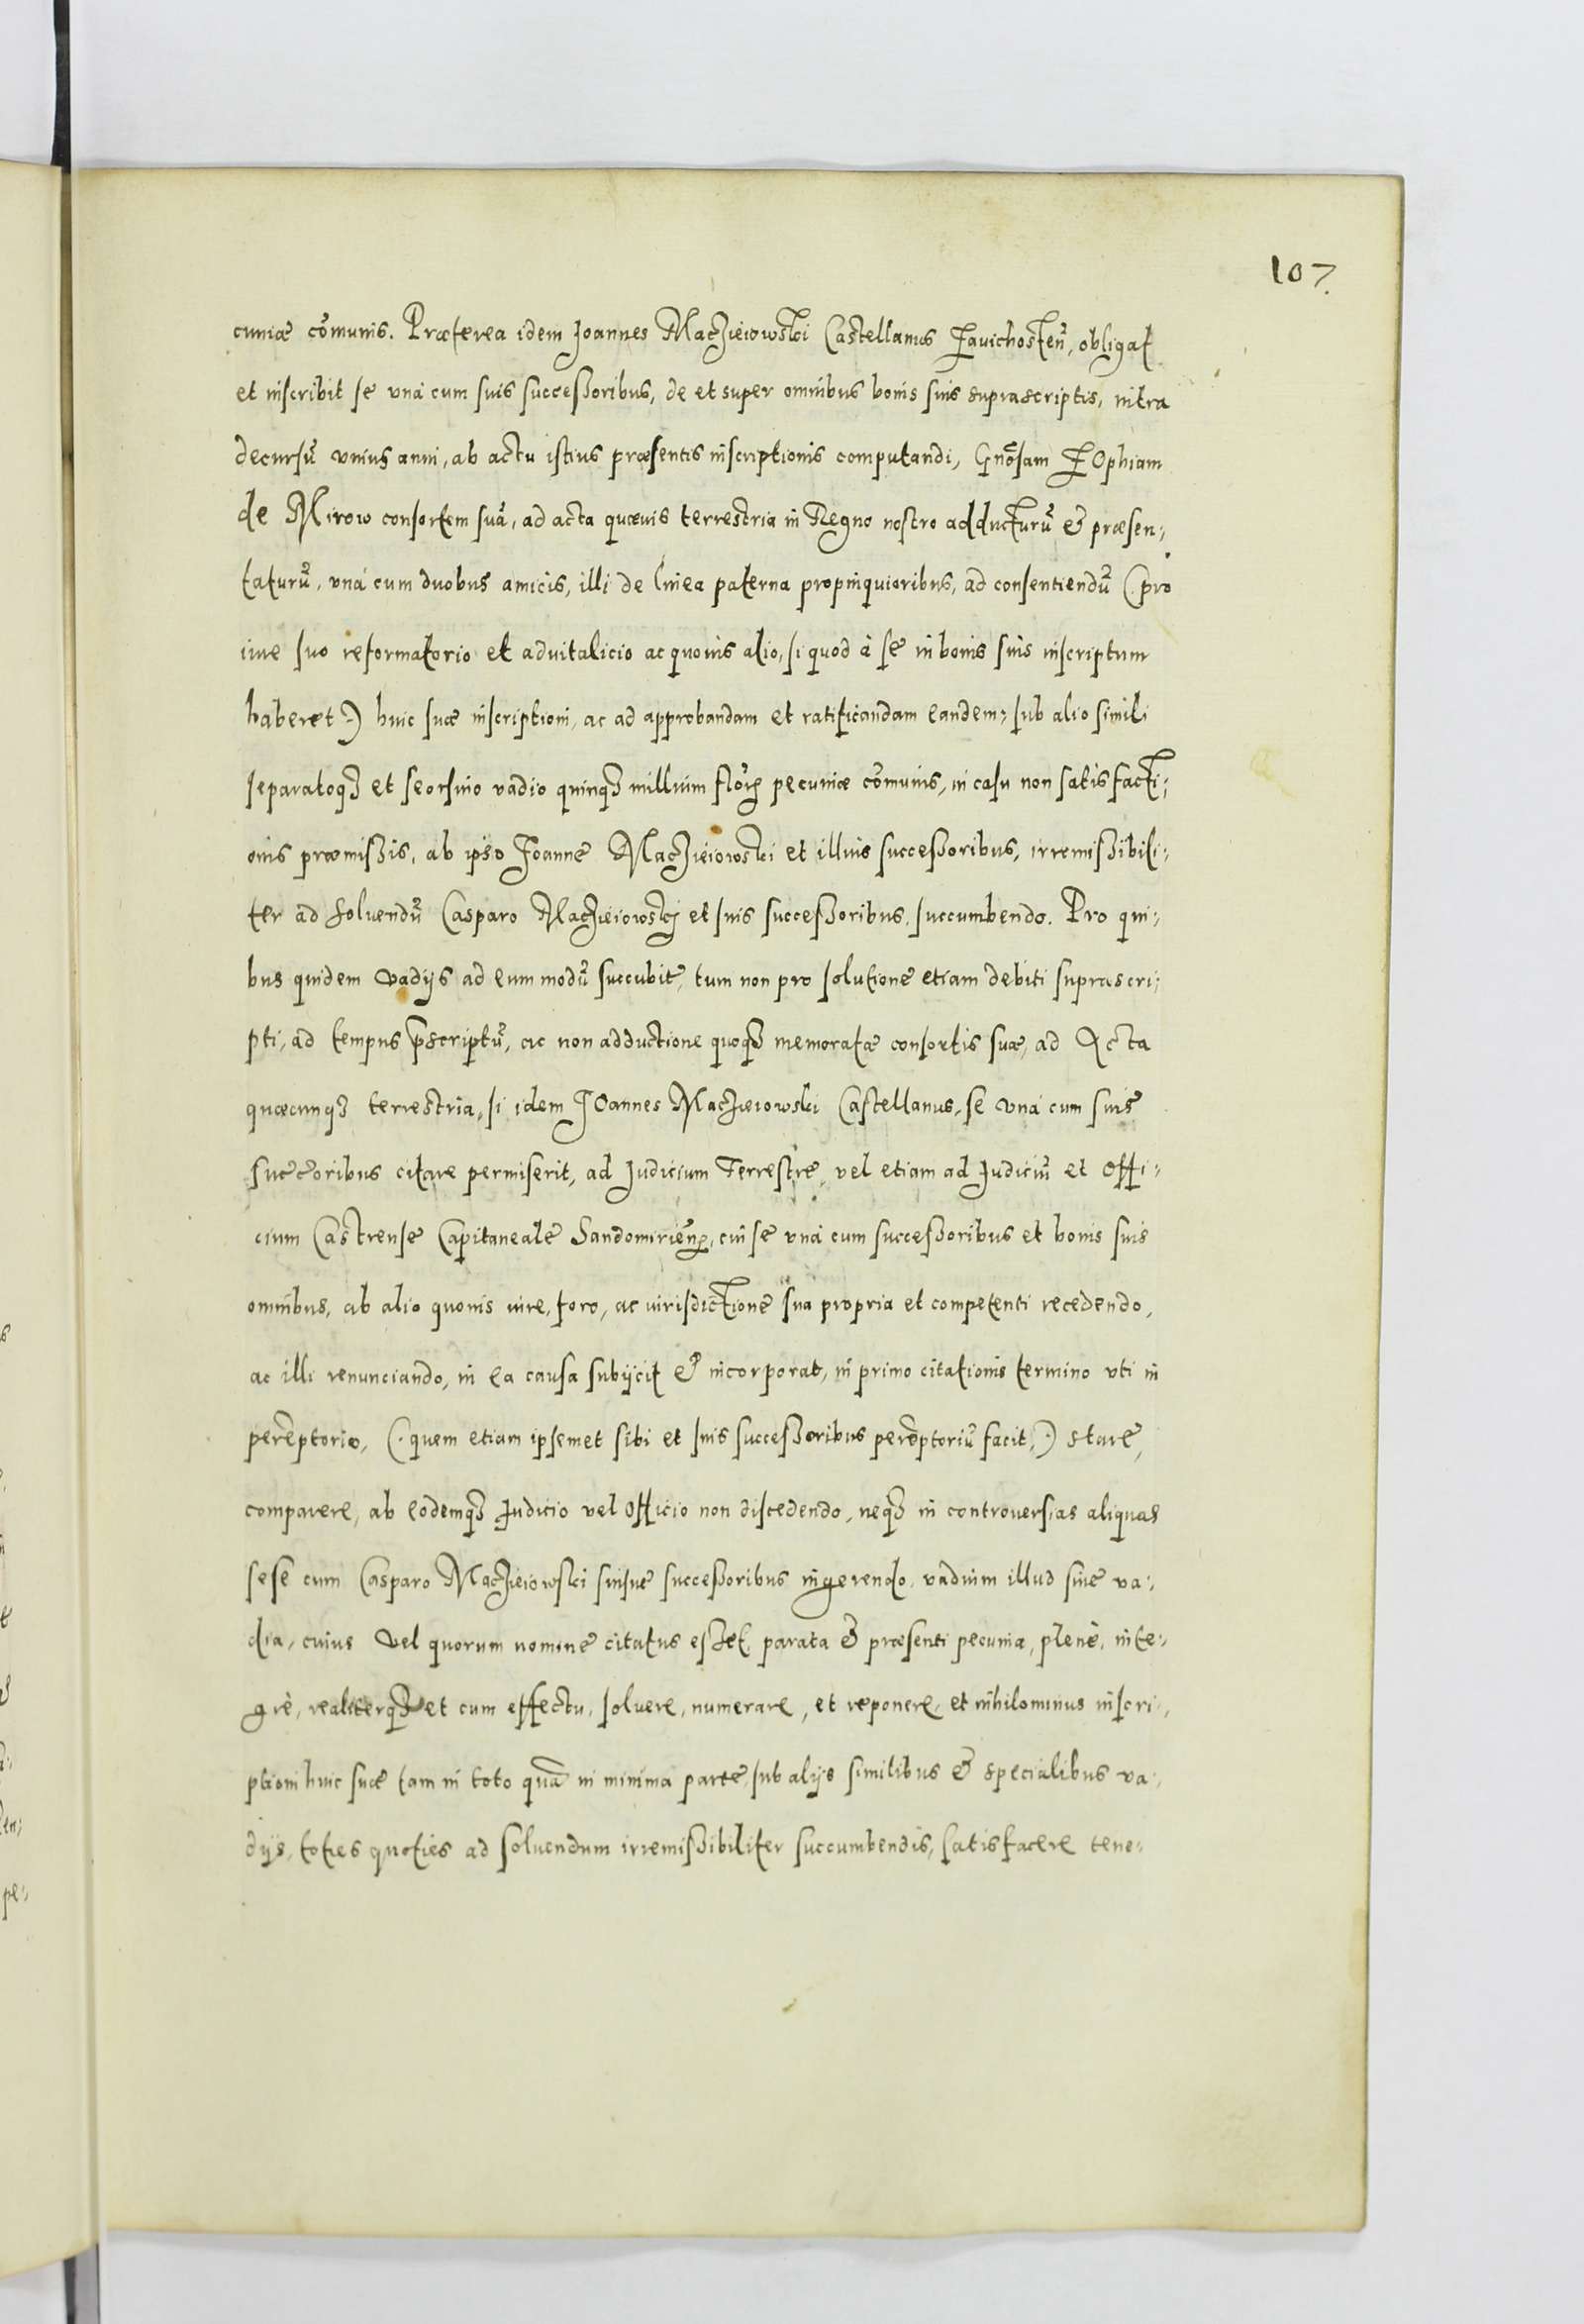 107.
cuniæ cõmunis. Præterea idem Joannes Maczieiowski Castellanus Zavichosteñ, obligat
et inscribit se vná cum suis successoribus, de et super omnibus bonis suis suprascriptis, intra
decursũ vnius anni, ab actu istius præsentis inscriptionis computandi, Gñosam ZOphiam
de Mirow consortem suã, ad acta quævis terrestria in Regno nostro adducturũ & præsen:,
taturũ, vná cum duobus amicis, illi de linea paterna propinquioribus, ad consentiendũ (. pro
iure suo reformatorio et advitalicio ac quovis alio, si quod à se in bonis suis inscriptum
haberet .) huic suæ inscriptioni, ac ad approbandam et ratificandam eandem, sub alio simili
separatoq₃ et seorsivo vadio quinq₃ millium floꝝ pecuniæ cõmunis, in casu non satisfacti:,
onis præmissis, ab ipso Joanne Maczieiowski et illius successoribus, irremissibili:,
ter ad soluendũ Casparo Maczieiowskj et suis successoribus, succumbendo. Pro qui:,
bus quidem vadijs ad eum modũ succubitẽ, tum non pro solutione etiam debiti suprascri:,
pti, ad tempus p̃scriptũ, ac non adductione quoq₃ memoratæ consortis suæ, ad Acta
quæcunq₃ terrestria, si idem JOannes Maczieiowski Castellanus, se vná cum suis
succ̃oribus citare permiserit, ad Judicium Terrestre, vel etiam ad Judiciũ et Offi:,
cium Castrense Capitaneale Sandomirieñ, cui se vná cum successoribus et bonis suis
omnibus, ab alio quovis iure, foro, ac iurisdictione sua propria et competenti recedendo,
ac illi renunciando, in ea causa subijcit & incorporat, in primo citationis termino vti in
perẽptorio, (. quem etiam ipsemet sibi et suis successoribus perẽptoriũ facit, .) stare,
comparere, ab eodemq₃ Judicio vel Officio non discedendo, neq₃ in controuersias aliquas
sese cum Casparo Maczieiowski suisue successoribus ingerendo, vadium illud siue va:,
dia, cuius vel quorum nomine citatus esset, parata & præsenti pecunia, plenè, inte:,
grè, realiterq₃ et cum effectu, soluere, numerare, et reponere, et nihilominus inscri:,
ptioni huic suæ tam in toto quã in minima parte, sub alijs similibus & specialibus va:,
dijs, toties quoties ad soluendum irremissibiliter succumbendis, satisfacere tene:,